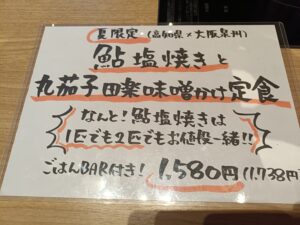 夏限定・(高知県×大阪泉州)
鮎塩焼きと
丸茄子田楽味噌かけ定食
なんと!鮎塩焼きは
1匹でも2匹でもお値段一緒!!
ごはんBAR付き!1,580円(1,738円)